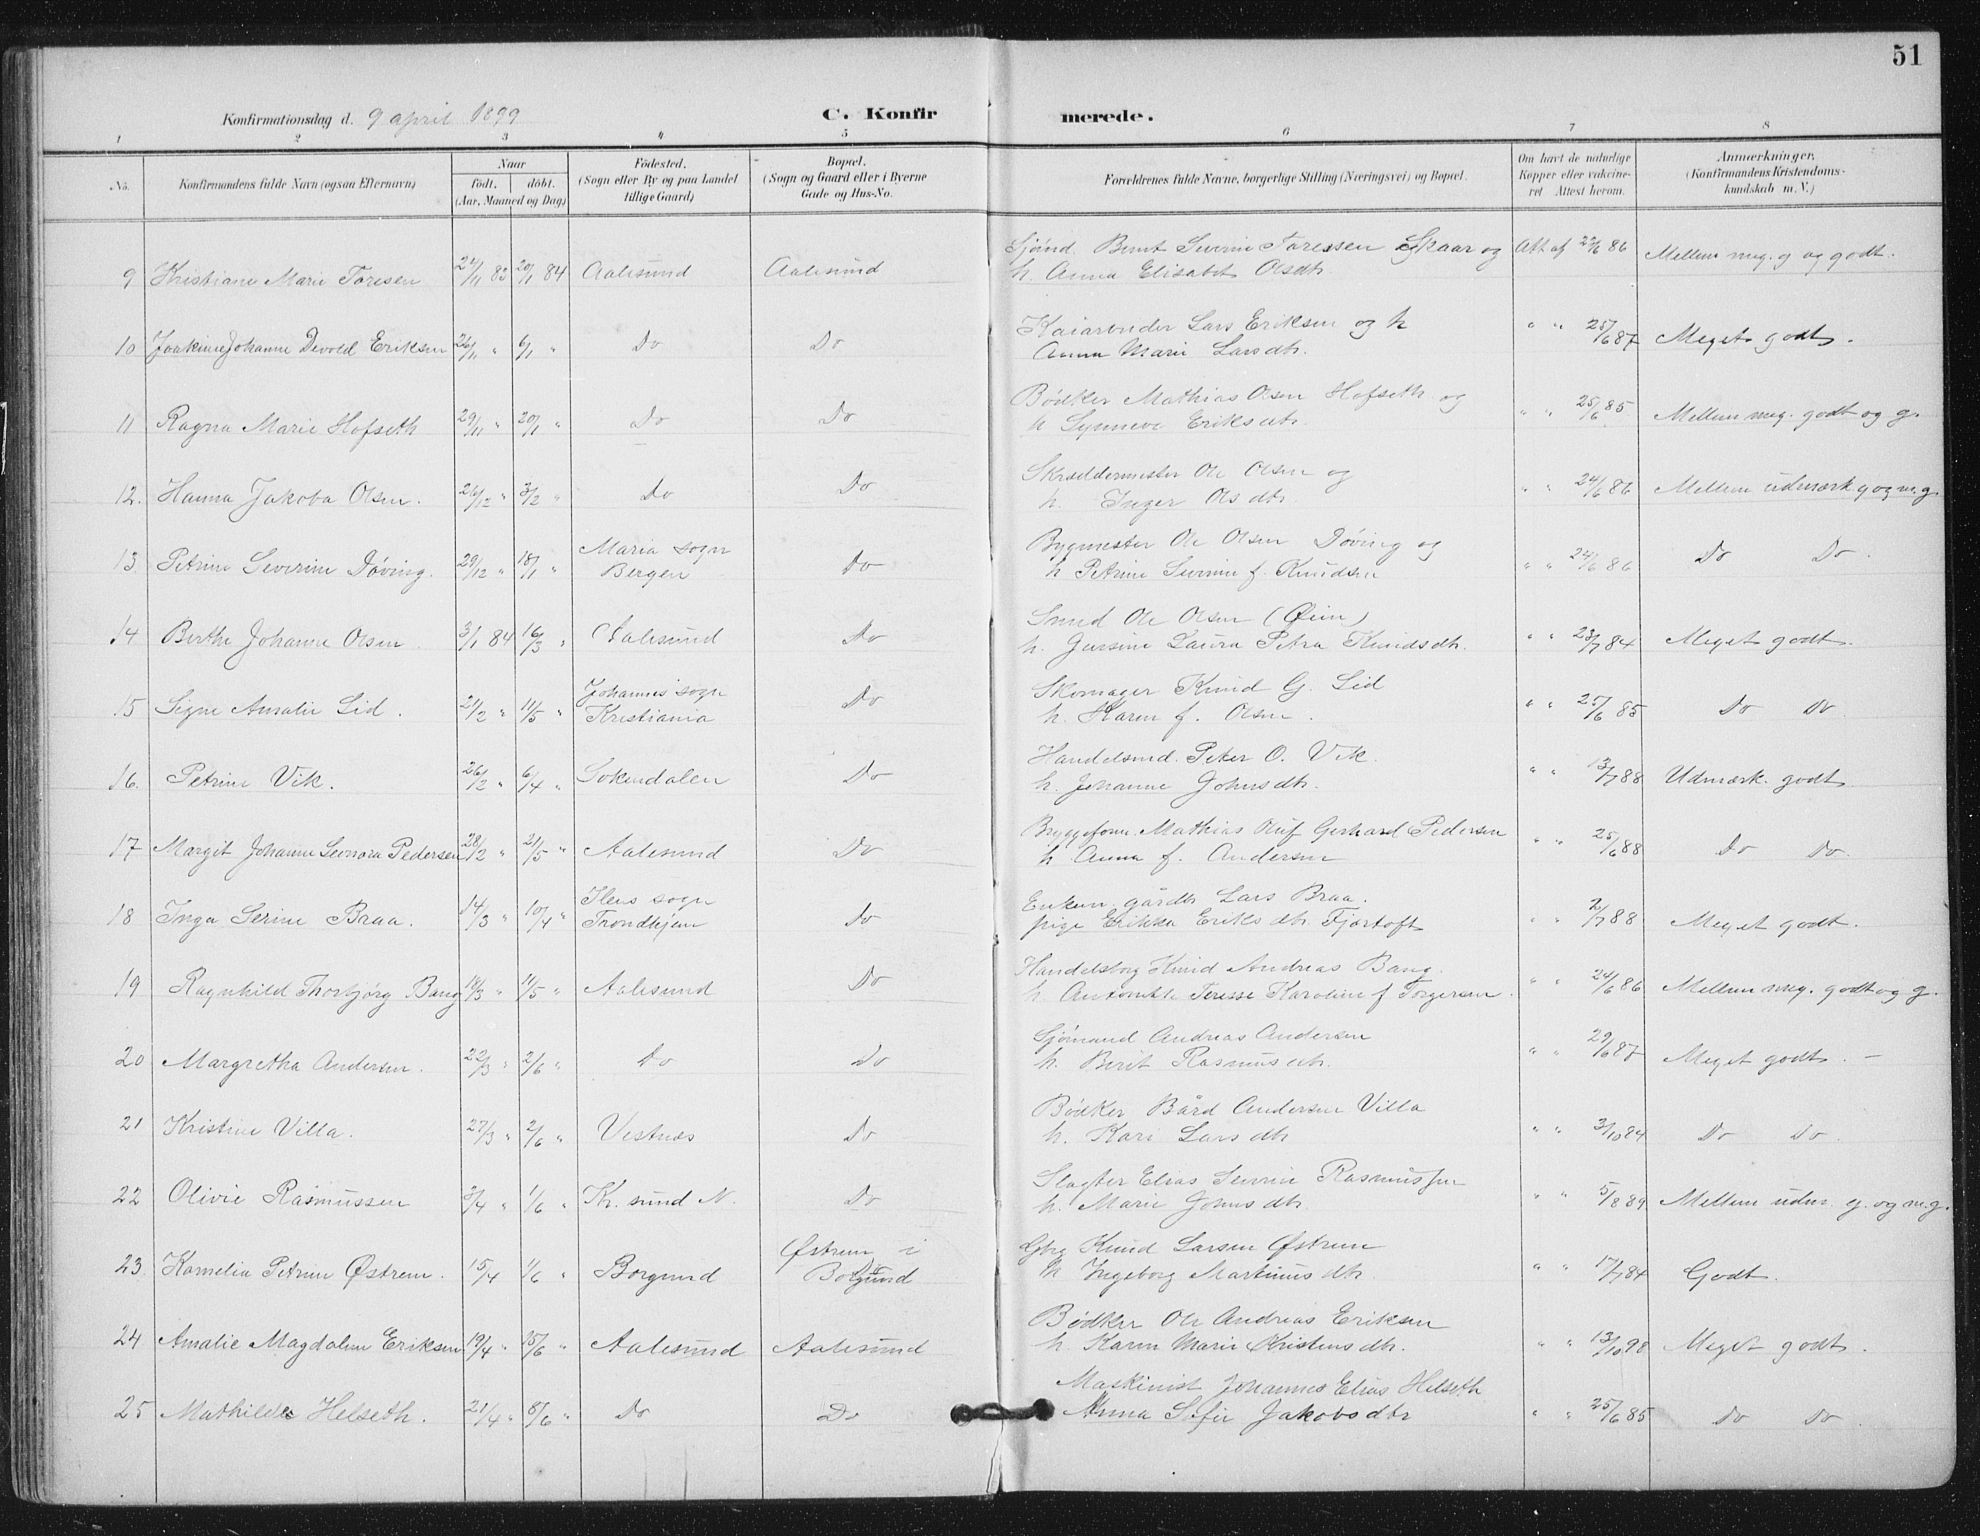 51
Konfirmationsdag d. 9 april 1899
C. Konfirmerede.
1 2 3 4 5 6 7 8
No.
Konfirmandens fulde Navn (ogsaa Efternavn)
Naar født. døbt. (Aar, Maaned og Dag)
Födested. (Sogn eller By og paa Landet tillige Gaard)
Bopæl. (Sogn og Gaard eller i Byerne Gade og Hus-No.
Forældrenes fulde Navne, borgerlige Stilling (Næringsvei) og Bopæl.
Om havt de naturlige Kopper eller vakcineret Attest herom.
Anmærkninger. (Konfirmandens Kristendomskundskab m. V.)
9 Kristiane Marie Toresen 21/11 83 20/1 84 Aalesund Aalesund Sjömd. Bernt Severin Toressen Skaar og Att af 22/6 86 Mellem meg. g og godt.
h. Anna Elisabet Olsdtr.
10 Joakime Johanne Devold Eriksen 26/11 " 6/1 " Do Do Kaiarbeider Lars Eriksen og h " " 25/6 87 Meget godt.
Anna Marie Larsdtr.
11 Ragna Marie Hofseth 29/11 " 20/1 " Do Do Bødker Mathias Olsen Hofseth og " " 25/6 85 Mellem meg. godt og g.
h Synneve Eriksdtr.
12. Hanna Jakoba Olsen. 26/12 " 3/2 " Do Do Skræddermester Ole Olsen og " " 24/6 86 Mellem udmærk. g og m. g.
h. Inger Olsdtr.
13 Petrine Severine Døving. 29/12 " 18/1 " Maria sogn Bergen Do Bygmester Ole Olsen Døving og " " 24/6 86 Do Do.
h Petrine Severine f. Knudsen
14 Berthe Johanne Olsen 3/1 84 16/3 " Aalesund Do Smed Ole Olsen (Øim) " " 23/7 84 Meget godt.
h. Jensine Laura Petra Knudsdtr.
15 Signe Amalie Lid. 21/2 " 11/5 " Johannes' sogn Kristiania Do Skomager Knud G. Lid " " 25/6 85 Do Do.
h. Karen f. Olsen.
16. Petrine Vik. 26/2 " 6/4 " Sokendalen Do Handelsmd. Peter O. Vik. " " 13/7 88 Udmærk. godt
h. Johanne Johnsdtr.
17 Margit Johanne Leonora Pedersen 28/2 " 21/5 " Aalesund Do Bryggeform. Mathias Oluf Gerhard Pedersen " " 25/6 88 Do Do.
h. Anna f. Andersen
18 Inga Serine Braa. 14/3 " 10/4 " Ilens sogn Trondhjem Do Enkem. gårdbr Lars Braa. " " 2/7 88 Meget godt.
pige Erikka Eriksdtr. Fjørtoft
19 Ragnhild Thorbjørg Bang 18/3 " 11/5 " Aalesund Do Handelsborg Knud Andreas Bang. " " 24/6 86 Mellem meg. godt og g.
h. Teresse Karoline f Torgersen.
20 Margretha Andersen. 22/3 " 2/6 " Do Do Sjømand Andreas Andersen " " 29/6 87 Meget godt. –
h. Berit Rasmusdtr.
21 Kristine Villa. 27/3 " 2/6 " Vestnæs Do Bødker Bård Andersen Villa " " 3/10 84 Do Do.
h. Kari Larsdtr
22 Olivie Rasmussen 3/4 " 1/6 " Kr. sund N. Do Slagter Elias Severin Rasmussen " " 5/8 89 Mellem udm. g. og m.g.
h. Marie Johnsdtr.
23. Kornelia Petrine Østrem. 15/4 " 1/6 " Borgund Østrem i Borgund Gbr Knud Larsen Østrem " " 17/7 84 Godt.
h Ingeborg Martinusdtr.
24 Amalie Magdalene Eriksen 19/4 " 15/6 " Aalesund Aalesund Bødker Ole Andreas Eriksen " " 13/10 98 Meget godt.
h. Karen Marie Kristensdtr.
25 Mathilde Helseth. 21/4 " 8/6 " Do Do Maskinist Johannes Elias Helseth " " 25/6 85 Do Do.
Anna Sofie Jakobsdtr